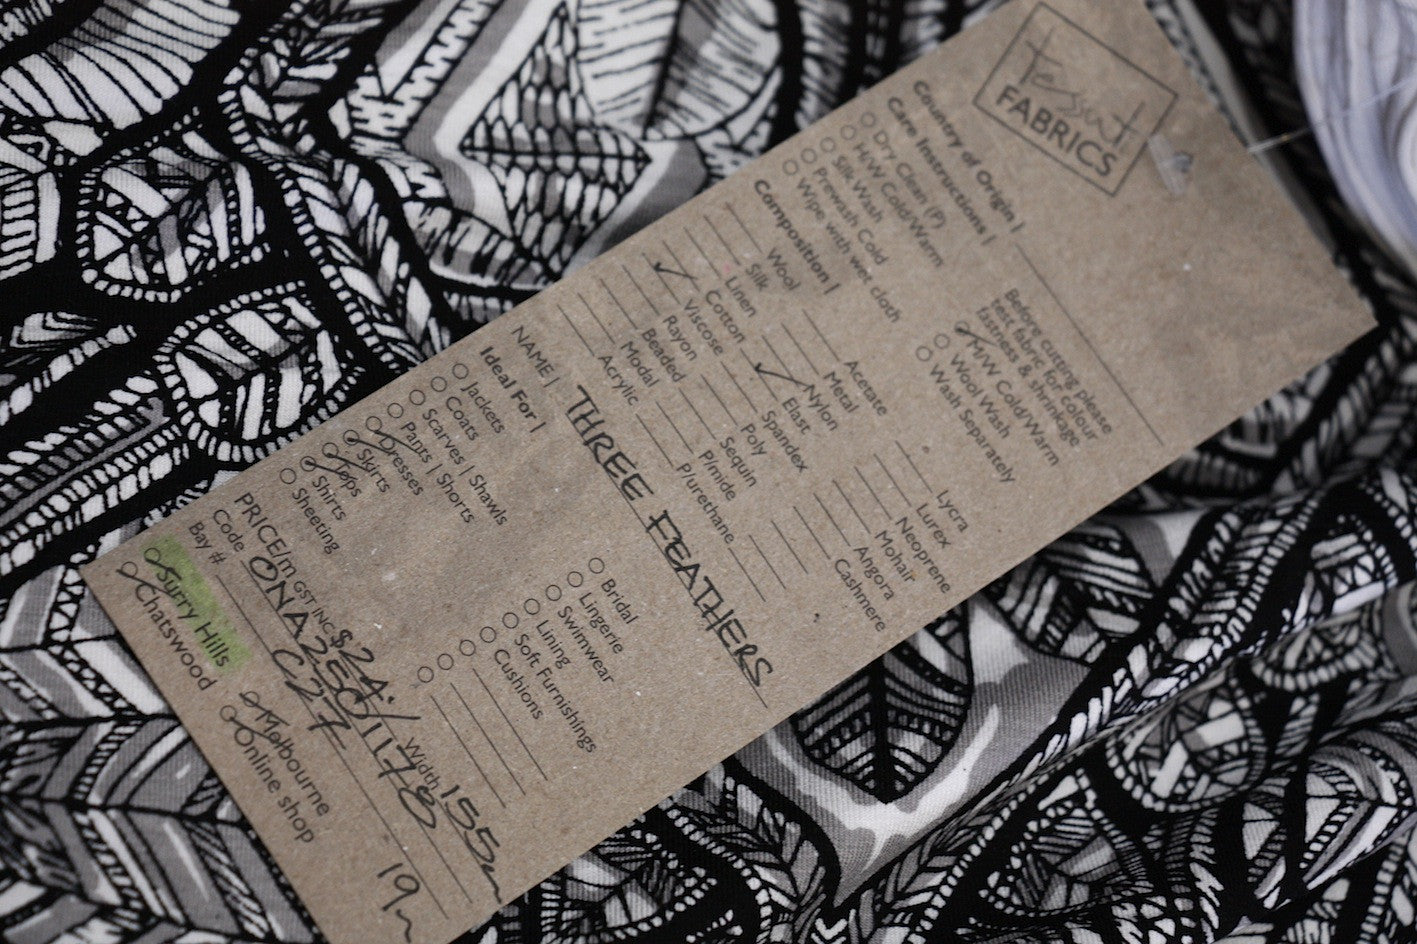 Tessuti
FABRICS
Country of Origin |
Care Instructions |
Dry Clean (P)
H/W Cold/Warm
Silk Wash
Prewash Cold
Wipe with wet cloth
Before cutting please
test fabric for colour
fastness & shrinkage
M/W Cold/Warm
Wool Wash
Wash Separately
Composition |
Wool
Silk
Linen
Cotton
Viscose
Rayon
Beaded
Modal
Acrylic
Acetate
Metal
Nylon
Elast
Spandex
Poly
Sequin
P/mide
P/urethane
Lycra
Lurex
Neoprene
Mohair
Angora
Cashmere
NAME | THREE FEATHERS
Ideal For |
Jackets
Coats
Scarves | Shawls
Pants | Shorts
Dresses
Skirts
Tops
Shirts
Sheeting
Bridal
Lingerie
Swimwear
Lining
Soft Furnishings
Cushions
PRICE/m GST INC $24.- Width 155cm
Code ONA25011778
Bay # C27
19m
Surry Hills
Chatswood
Melbourne
Online shop